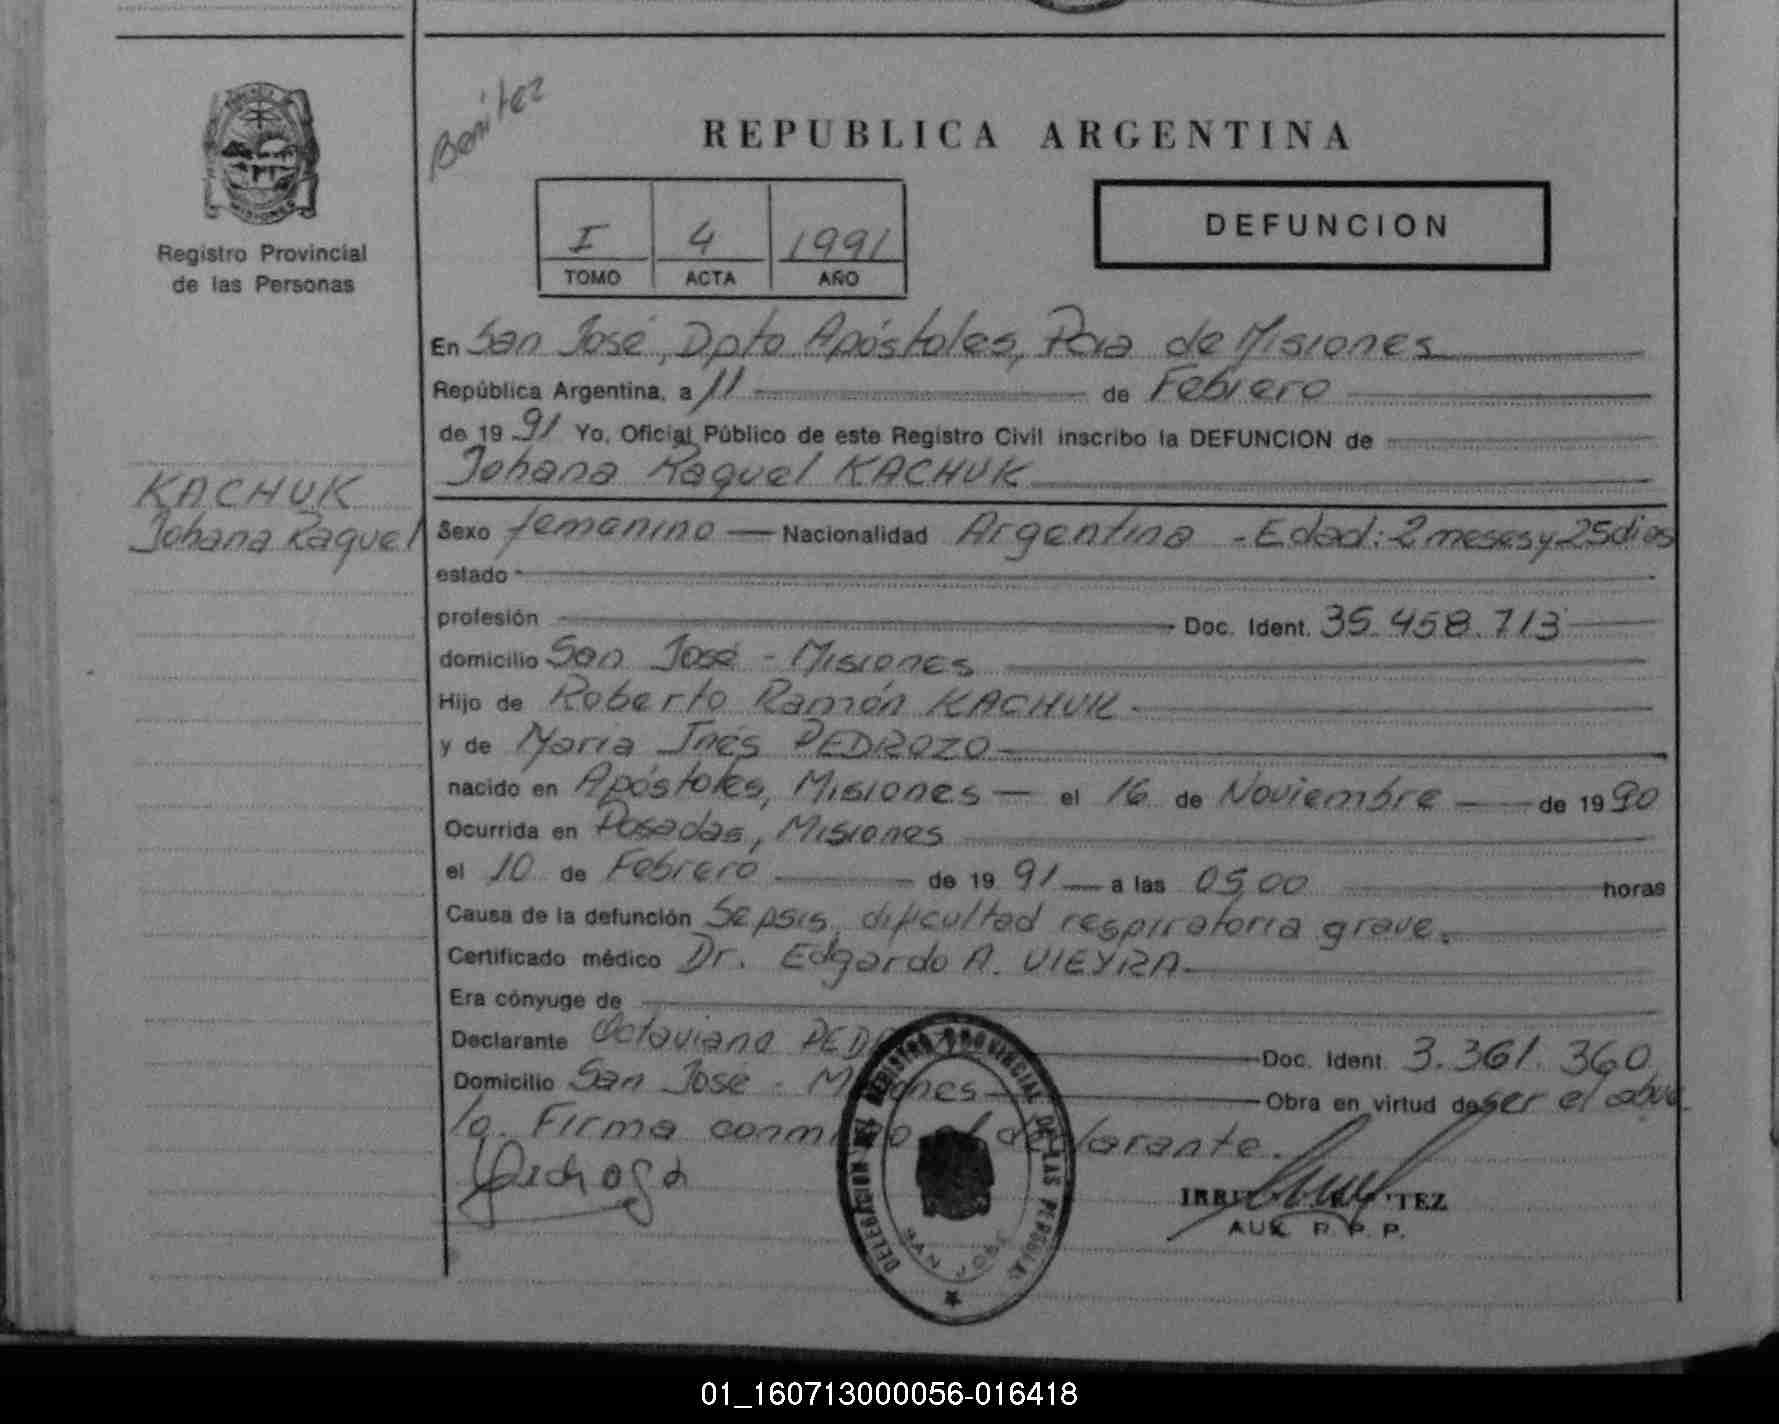 Benitez
REPUBLICA ARGENTINA
I 4 1991
TOMO ACTA AÑO
DEFUNCION
MISIONES
Registro Provincial
de las Personas
En San José, Dpto Apóstoles, Pcia de Misiones
República Argentina, a 11 de Febrero
de 19 91 Yo, Oficial Público de este Registro Civil inscribo la DEFUNCION de
Johana Raquel KACHUK
KACHUK
Johana Raquel
Sexo femenino — Nacionalidad Argentina - Edad: 2 meses y 25 dias
estado
profesión Doc. Ident. 35.458.713
domicilio San José - Misiones
Hijo de Roberto Ramón KACHUK
y de Maria Inés PEDROZO
nacido en Apóstoles, Misiones — el 16 de Noviembre — de 19 90
Ocurrida en Posadas, Misiones
el 10 de Febrero de 19 91 — a las 05,00 horas
Causa de la defunción Sepsis, dificultad respiratoria grave.
Certificado médico Dr. Edgardo A. VIEYRA
Era cónyuge de
Declarante Octaviano Doc. Ident. 3.361.360
Domicilio San José - Misiones Obra en virtud de ser el abue
lo. Firma conmigo el declarante.
DELEGACION DEL REGISTRO PROVINCIAL DE LAS PERSONAS
SAN JOSE
AUX. R. P. P.
01_160713000056-016418